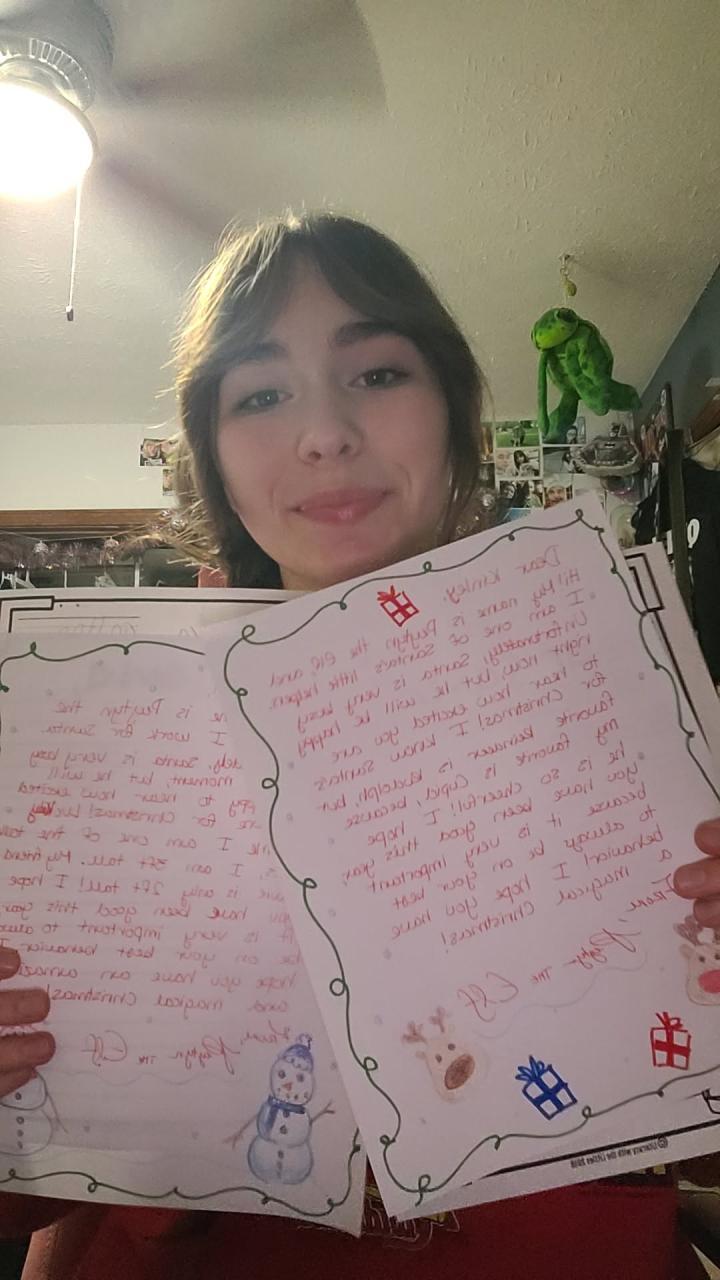 Dear Kinley,
Hi! My name is Peytyn the Elf, and
I am one of Santa's little helpers.
Unfortunately, Santa is very busy
right now, but he will be happy
to hear how excited you are
for Christmas! I know Santa's
favorite reindeer is Rudolph, but
my favorite is Cupid, because
he is so cheerful! I hope
you have been good this year,
because it is very important
to always be on your best
behavior! I hope you have
a magical Christmas!
From,
Peytyn The Elf
is Peytyn the
I work for Santa.
Santa is very busy
moment, but he will
to hear how excited
are for Christmas! Lucky
I am one of the
I am 3ft tall. My friend
is only 2ft tall! I hope
you have been good this year
It is very important to
be on your best behavior! I
hope you have an amazing
and magical Christmas!
From,
Peytyn The Elf